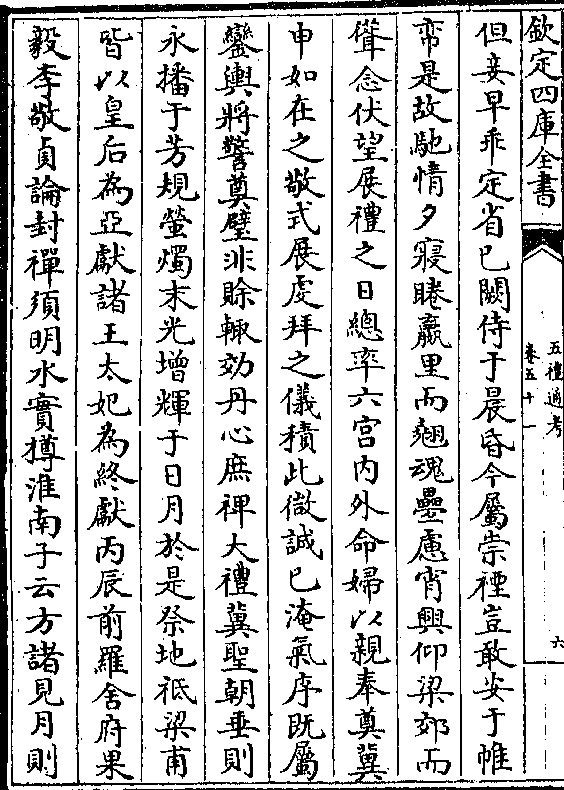 欽定四庫全書
五禮通考
卷五十一
六
但妾早乖定省已闕侍于晨昏今屬崇禋豈敢安于帷
帟是故馳情夕寢睠嬴里而翹魂疊慮宵興仰梁郊而
聳念伏望展禮之日總率六宮内外命婦以親奉奠冀
申如在之敬式展虔拜之儀積此微誠已淹氣序既屬
鑾輿將警奠璧非賒輒効丹心庶裨大禮冀聖朝垂則
永播于芳規螢燭末光增輝于日月於是祭地祇梁甫
皆以皇后為亞獻諸王太妃為終獻丙辰前羅舍府果
毅李敬貞論封禪須明水實樽淮南子云方諸見月則